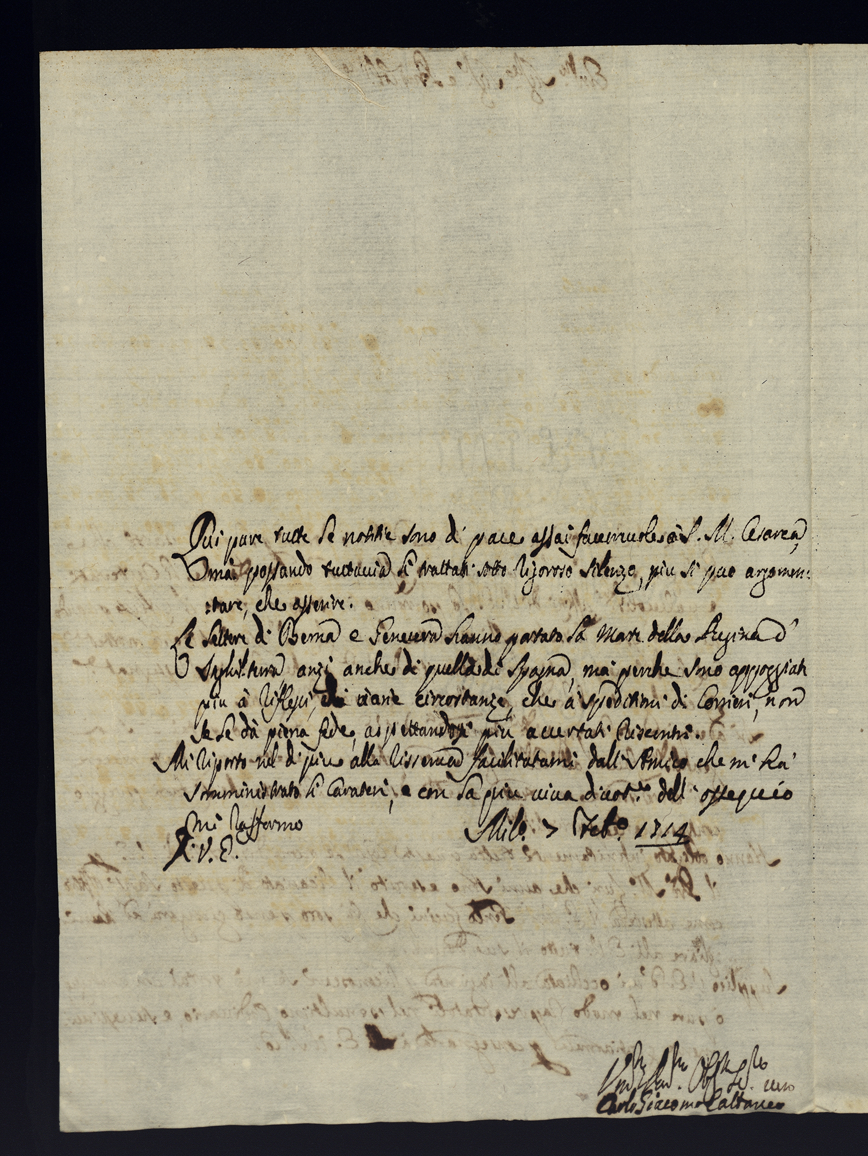 Qui pure tutte le notitie sono di pace assai favorevole à S. M. Cesarea,
mà passando tuttavia li trattati sotto rigoroso silenzo, piu si può argomen:
tare, che asserire.
Le lettere di Berna e Genevera hanno portato la Morte della Regina d'
Inghilterra anzi anche di quella di Spagna, mà perche sono appoggiati
piu à riflessi, di varie circostanze, che à speditioni di Corrieri, non
se le dà piena fede, aspettandosi più accertati riscontri.
Mi riporto nel di piu alla lisserma facilitatami dall' Amico che m' hà
somministrato li Caratteri, e con la piu viva divot.ne dell' ossequio
mi raffermo
Mil.o 7 Feb.o 1714
D. V. E.
Carlo Giacomo Cattaneo